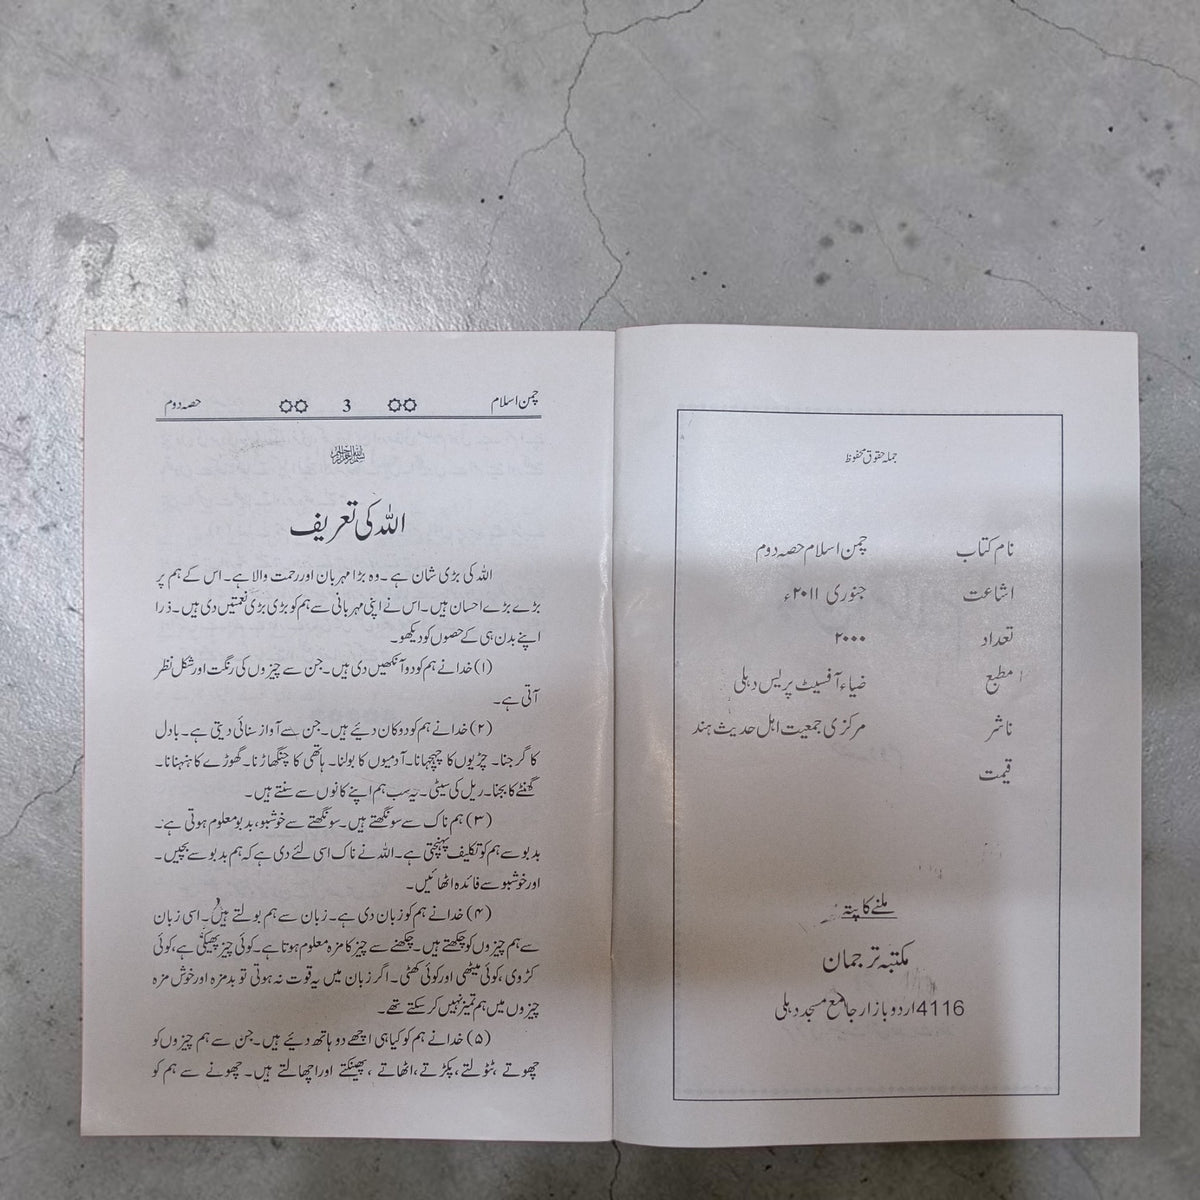 جملہ حقوق محفوظ
نام کتاب چمن اسلام حصہ دوم
اشاعت جنوری ۲۰۱۱ء
تعداد ۲۰۰۰
مطبع ضیاء آفسیٹ پریس دہلی
ناشر مرکزی جمعیت اہل حدیث ہند
قیمت
ملنے کا پتہ
مکتبہ ترجمان
4116 اردو بازار جامع مسجد دہلی
چمن اسلام 3 حصہ دوم
﷽
اللہ کی تعریف
اللہ کی بڑی شان ہے ۔ وہ بڑا مہربان اور رحمت والا ہے۔ اس کے ہم پر
بڑے بڑے احسان ہیں۔ اس نے اپنی مہربانی سے ہم کو بڑی بڑی نعمتیں دی ہیں۔ ذرا
اپنے بدن ہی کے حصوں کو دیکھو۔
(۱) خدا نے ہم کو دو آنکھیں دی ہیں۔ جن سے چیزوں کی رنگت اور شکل نظر
آتی ہے۔
(۲) خدا نے ہم کو دو کان دیئے ہیں۔ جن سے آواز سنائی دیتی ہے۔ بادل
کا گرجنا۔ چڑیوں کا چہچہانا۔ آدمیوں کا بولنا۔ ہاتھی کا چنگھاڑنا۔ گھوڑے کا ہنہنانا۔
گھنٹے کا بجنا۔ ریل کی سیٹی۔ یہ سب ہم اپنے کانوں سے سنتے ہیں۔
(۳) ہم ناک سے سونگھتے ہیں۔ سونگھنے سے خوشبو، بدبو معلوم ہوتی ہے۔
بدبو سے ہم کو تکلیف پہنچتی ہے۔ اللہ نے ناک اسی لئے دی ہے کہ ہم بدبو سے بچیں۔
اور خوشبو سے فائدہ اٹھائیں۔
(۴) خدا نے ہم کو زبان دی ہے۔ زبان سے ہم بولتے ہیں۔ اسی زبان
سے ہم چیزوں کو چکھتے ہیں۔ چکھنے سے چیز کا مزہ معلوم ہوتا ہے۔ کوئی چیز پھیکی ہے، کوئی
کڑوی ، کوئی میٹھی اور کوئی کھٹی۔ اگر زبان میں یہ قوت نہ ہوتی تو بدمزہ اور خوش مزہ
چیزوں میں ہم تمیز نہیں کر سکتے تھے۔
(۵) خدا نے ہم کو کیا ہی اچھے دو ہاتھ دیئے ہیں۔ جن سے ہم چیزوں کو
چھوتے ، ٹٹولتے ، پکڑتے ، اٹھاتے ، پھینکتے اور اچھالتے ہیں۔ چھونے سے ہم کو